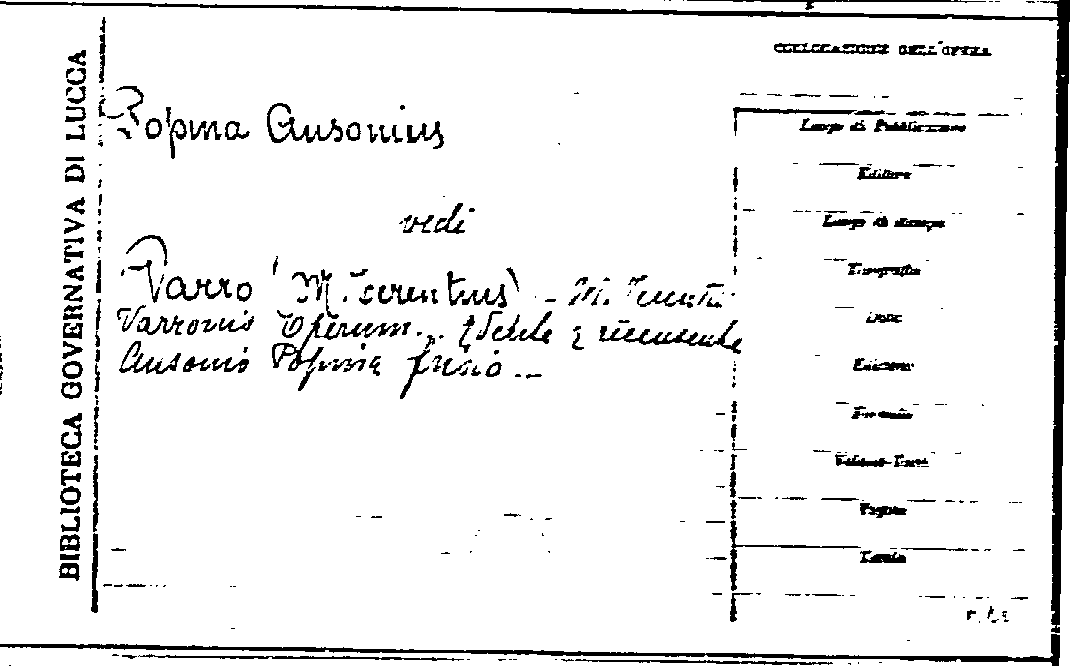 BIBLIOTECA GOVERNATIVA DI LUCCA
COLLOCAZIONE DELL'OPERA
Popma Ausonius
vedi
Varro (M. Terentius) - M. Terentii
Varronis Operum...
Ausonio Popma frisio...
Luogo di Pubblicazione
Editore
Luogo di stampa
Tipografia
Data
Edizione
Formato
Pagine